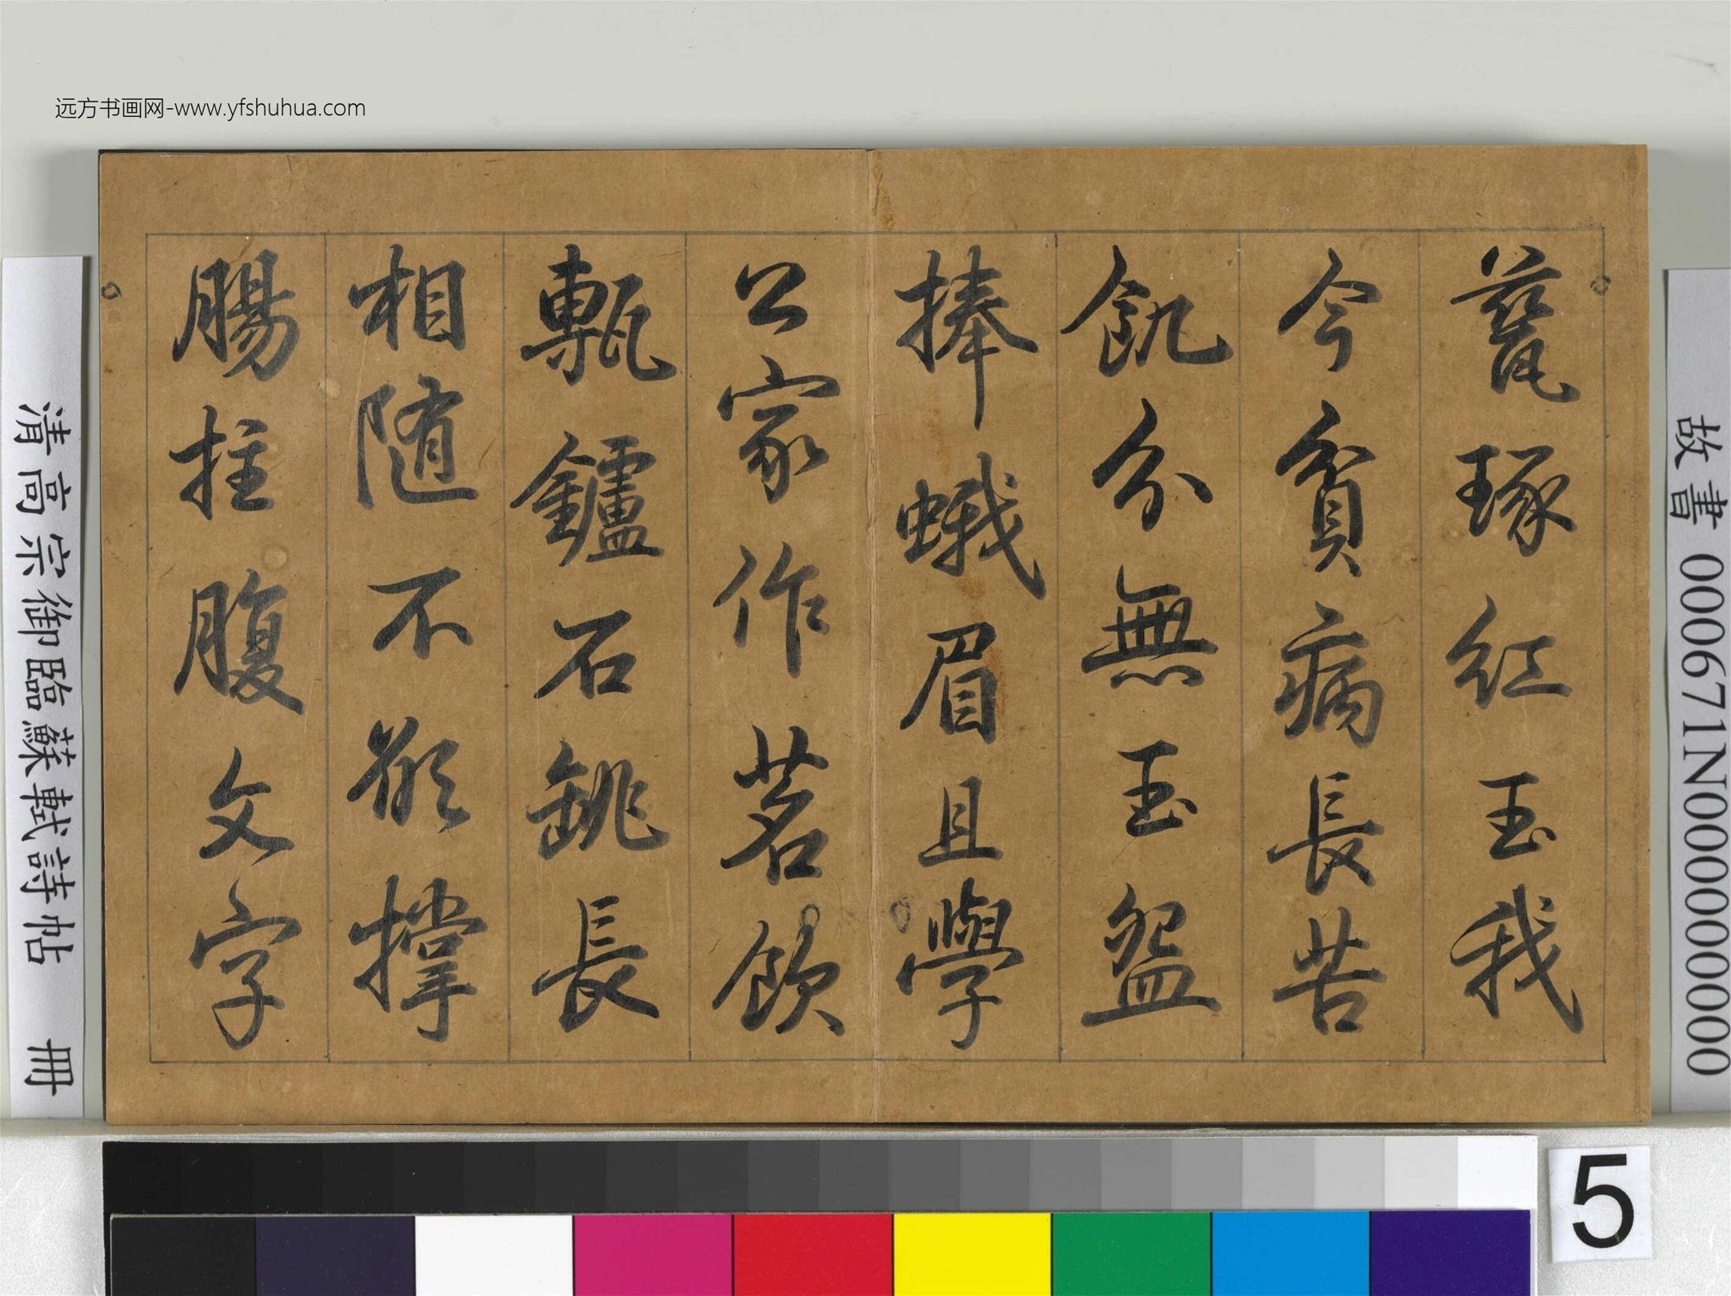 远方书画网-www.yfshuhua.com
故書 000671N000000000
甆琢紅玉我
今貧病長苦
飢分無玉盌
捧蛾眉且學
公家作茗飲
甎鑪石銚長
相隨不欲撐
腸拄腹文字
清高宗御臨蘇軾詩帖 冊
5